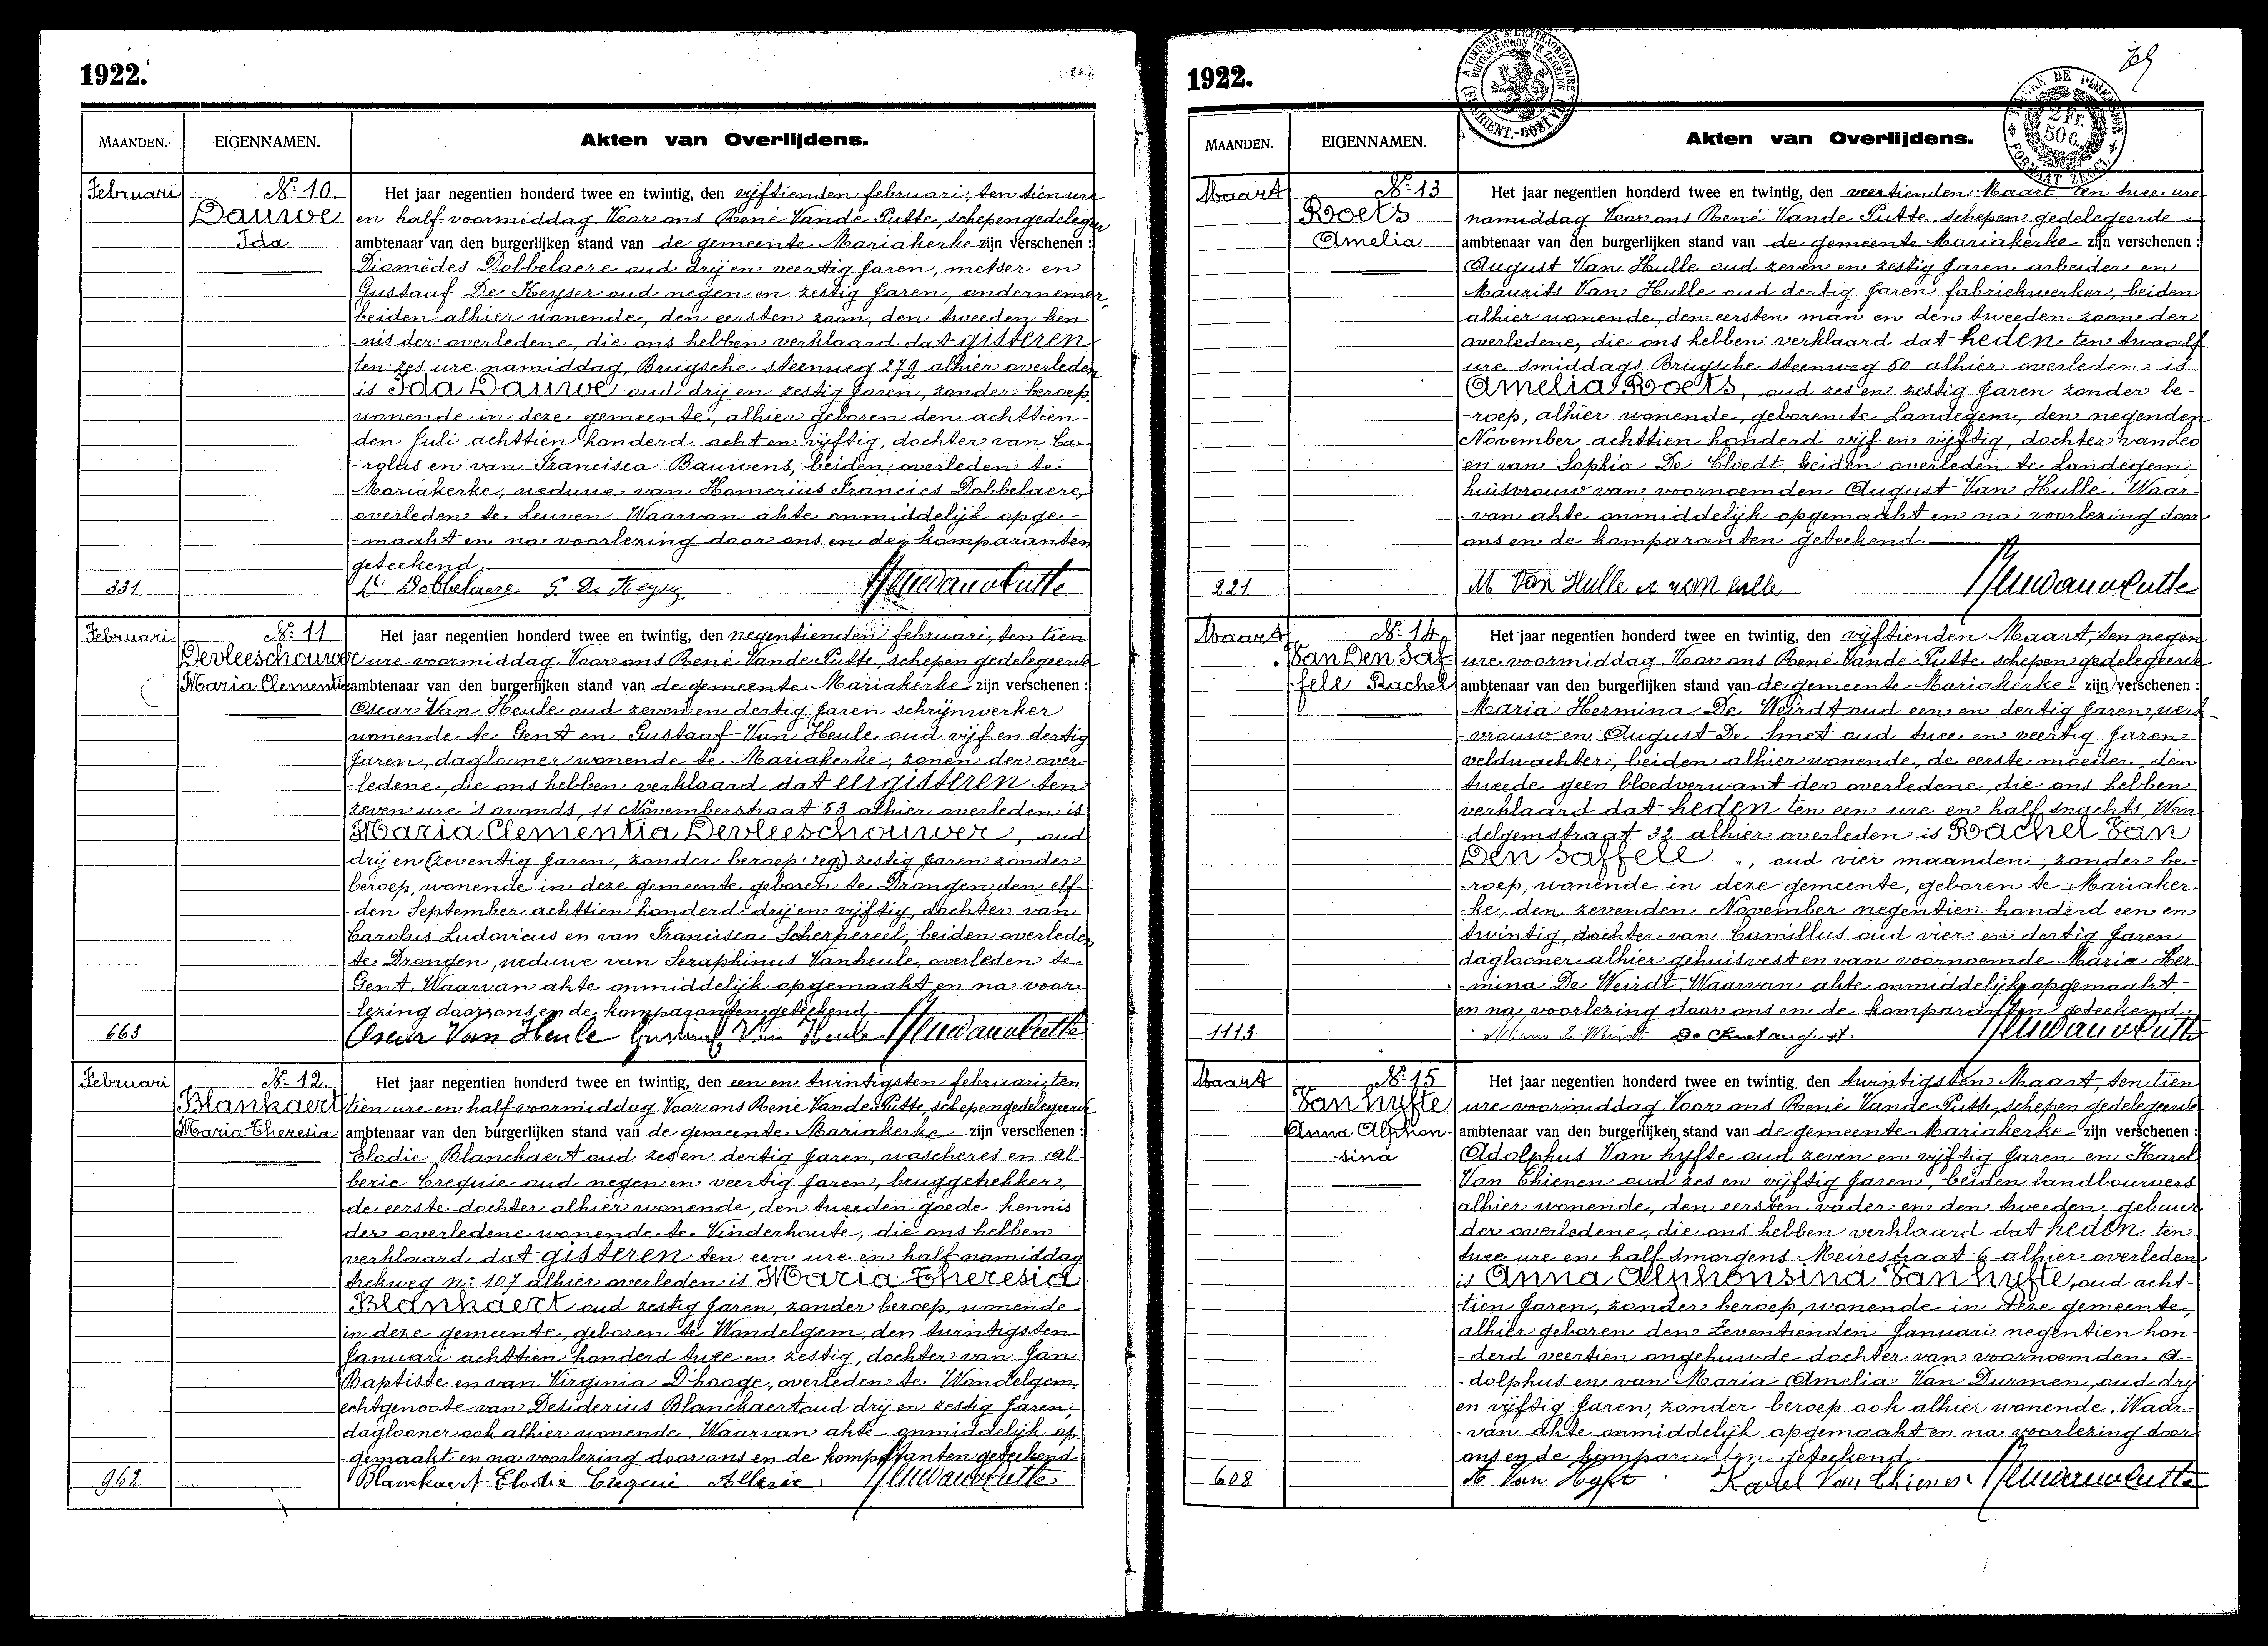 1922.
MAANDEN.
EIGENNAMEN.
Akten van Overlijdens.
Februari
No. 10.
Dauwe
Ida
Het jaar negentien honderd twee en twintig, den vijftienden februari, ten tien ure
en half voormiddag Voor ons René Vande Putte, schepen gedelegeer
ambtenaar van den burgerlijken stand van de gemeente Mariakerke zijn verschenen :
Diomèdes Dobbelaere oud drij en veertig Jaren, metser en
Gustaaf De Keyser oud negen en zestig Jaren, ondernemer,
beiden alhier wonende, den eersten zoon, den tweeden ken-
-nis der overledene, die ons hebben verklaard dat gisteren
ten zes ure namiddag, Brugsche steenweg 279 alhier overleden
is Ida Dauwe oud drij en zestig Jaren, zonder beroep,
wonende in deze gemeente, alhier geboren den achttien-
den Juli achttien honderd acht en vijftig, dochter van Ca-
-rolus en van Francisca Bauwens, beiden overleden te
Mariakerke, weduwe van Homerius Francies Dobbelaere,
overleden te Leuven. Waarvan akte onmiddelijk opge-
-maakt en na voorlezing door ons en de komparanten
geteekend.
D. Dobbelaere G. De Keyser
331
Februari
No. 11
Devleeschouwer
Maria Clementia
Het jaar negentien honderd twee en twintig, den negentienden februari, ten tien
ure voormiddag. Voor ons René Vande Putte, schepen gedelegeerde
ambtenaar van den burgerlijken stand van de gemeente Mariakerke zijn verschenen :
Oscar Van Heule oud zeven en dertig Jaren schrijnwerker
wonende te Gent en Gustaaf Van Heule oud vijf en dertig
Jaren, daglooner wonende te Mariakerke, zonen der over-
-ledene, die ons hebben verklaard dat eergisteren ten
zeven ure 's avonds, 11 Novemberstraat 53 alhier overleden is
Maria Clementia Devleeschouwer, oud
drij en (zeventig Jaren, zonder beroep: zeg:) zestig Jaren zonder
beroep, wonende in deze gemeente geboren te Drongen, den elf
-den September achttien honderd drij en vijftig, dochter van
Carolus Ludovicus en van Francisca Scherpereel, beiden overleden
te Drongen, weduwe van Seraphinus Vanheule, overleden te
Gent. Waarvan akte onmiddelijk opgemaakt en na voor-
-lezing door ons en de komparanten geteekend.
Oscar Van Heule Gustaaf Van Heule
663
Februari
No. 12.
Blankaert
Maria Theresia
Het jaar negentien honderd twee en twintig, den een en twintigsten februari, ten
tien ure en half voormiddag Voor ons René Vande Putte schepen gedelegeerde
ambtenaar van den burgerlijken stand van de gemeente Mariakerke zijn verschenen :
Elodie Blanckaert oud zes en dertig Jaren, wascheres en Al-
berie Crequie oud negen en veertig Jaren, bruggetrekker,
de eerste dochter alhier wonende, den tweeden goede kennis
der overledene wonende te Vinderhoute, die ons hebben
verklaard dat gisteren ten een ure en half namiddag
trekweg n: 107 alhier overleden is Maria Theresia
Blankaert oud zestig Jaren, zonder beroep, wonende
in deze gemeente, geboren te Wondelgem, den twintigsten
Januari achttien honderd twee en zestig, dochter van Jan
Baptiste en van Virginia D'hooge, overleden te Wondelgem,
echtgenoote van Desiderius Blanckaert oud drij en zestig Jaren,
daglooner ook alhier wonende. Waarvan akte onmiddelijk op-
-gemaakt en na voorlezing door ons en de komparanten geteekend
Blanckaert Elodie Crequie Alberie
962
1922.
A TIMBRER A L'EXTRAORDINAIRE
BUITENGEWOON TE ZEGELEN
TIMBRE DE DIMENSION
2 Fr.
50 C.
FORMAAT ZEGEL
MAANDEN.
EIGENNAMEN.
Akten van Overlijdens.
Maart
No. 13
Roets
Amelia
Het jaar negentien honderd twee en twintig, den veertienden Maart ten twee ure
namiddag Voor ons René Vande Putte, schepen gedelegeerde
ambtenaar van den burgerlijken stand van de gemeente Mariakerke zijn verschenen :
August Van Hulle oud zeven en zestig Jaren arbeider en
Maurits Van Hulle oud dertig Jaren fabriekwerker, beiden
alhier wonende, den eersten man en den tweeden zoon der
overledene, die ons hebben verklaard dat heden ten twaalf
ure smiddags Brugsche steenweg 50 alhier overleden is
Amelia Roets, oud zes en zestig Jaren zonder be-
-roep, alhier wonende, geboren te Landegem, den negenden
November achttien honderd vijf en vijftig, dochter van Leo
en van Sophia De Cloedt, beiden overleden te Landegem
huisvrouw van voornoemden August Van Hulle. Waar-
-van akte onmiddelijk opgemaakt en na voorlezing door
ons en de komparanten geteekend.
M Van Hulle A van hulle
221
Maart
No. 14.
Van Den Saf-
fele Rachel
Het jaar negentien honderd twee en twintig, den vijftienden Maart, ten negen
ure voormiddag Voor ons René Vande Putte schepen gedelegeerde
ambtenaar van den burgerlijken stand van de gemeente Mariakerke zijn verschenen :
Maria Hermina De Weirdt oud een en dertig Jaren, werk-
-vrouw en August De Smet oud twee en veertig Jaren
veldwachter, beiden alhier wonende, de eerste moeder, den
tweede geen bloedverwant der overledene, die ons hebben
verklaard dat heden ten een ure en half snachts, Won-
-delgemstraat 32 alhier overleden is Rachel Van
Den Saffele, oud vier maanden, zonder be-
-roep, wonende in deze gemeente, geboren te Mariaker-
-ke, den zevenden November negentien honderd een en
twintig, dochter van Camillus oud vier en dertig Jaren
daglooner alhier gehuisvest en van voornoemde Maria Her-
-mina De Weirdt. Waarvan akte onmiddelijk opgemaakt
en na voorlezing door ons en de komparanten geteekend.
De Smet august.
1113
Maart
No. 15
Van hyfte
Anna Alphon-
sina
Het jaar negentien honderd twee en twintig, den twintigsten Maart, ten tien
ure voormiddag Voor ons René Vande Putte, schepen gedelegeerde
ambtenaar van den burgerlijken stand van de gemeente Mariakerke zijn verschenen :
Adolphus Van hyfte oud zeven en vijftig Jaren en Karel
Van Thienen oud zes en vijftig Jaren, beiden landbouwers
alhier wonende, den eersten vader en den tweeden gebuur
der overledene, die ons hebben verklaard dat heden ten
twee ure en half smorgens Meirestraat 6 alhier overleden
is Anna Alphonsina Van hyfte, oud acht-
tien Jaren, zonder beroep, wonende in deze gemeente,
alhier geboren den Zeventienden Januari negentien hon-
-derd veertien ongehuwde dochter van voornoemden A-
-dolphus en van Maria Amelia Van Durmen, oud drij
en vijftig Jaren, zonder beroep ook alhier wonende. Waar-
-van akte onmiddelijk opgemaakt en na voorlezing door
ons en de komparanten geteekend.
A Van Hyfte Karel Van Thienen
608